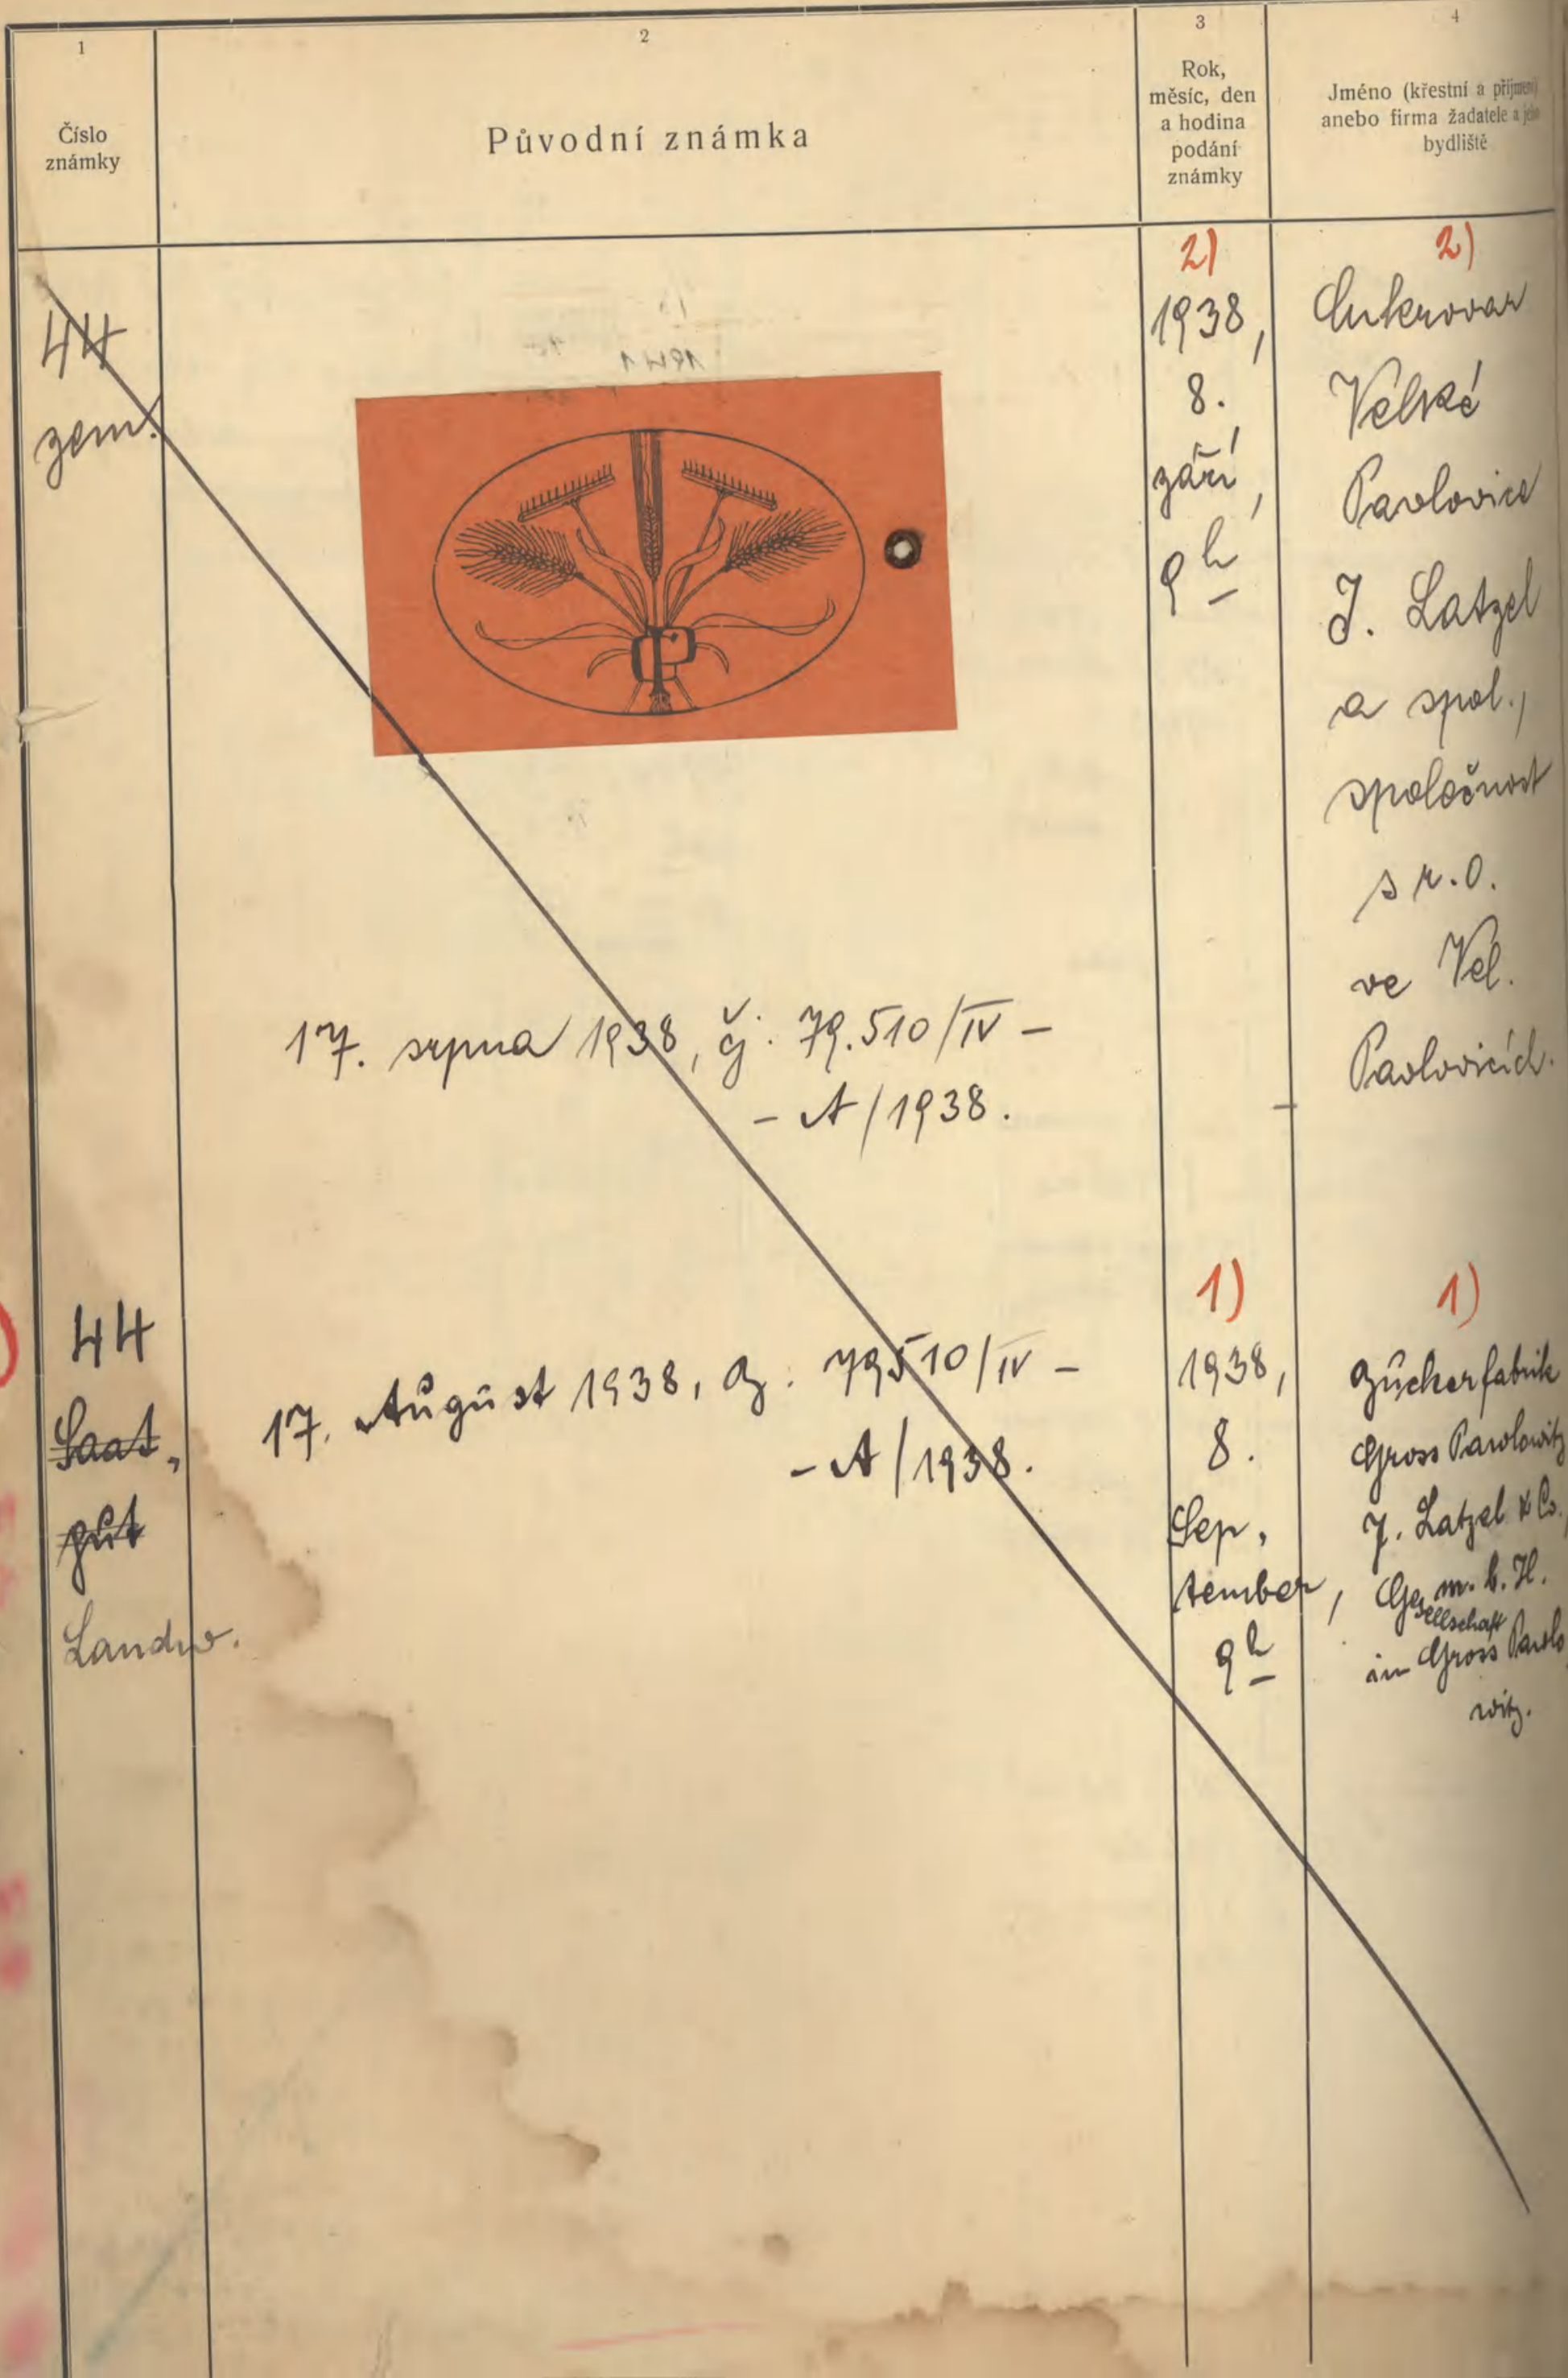 1
2
3
4
Číslo
známky
Původní známka
Rok,
měsíc, den
a hodina
podání
známky
Jméno (křestní a příjmení)
anebo firma žadatele a jeho
bydliště
44
zem.
2)
1938,
8.
září,
9 h
2)
Cukrovar
Velké
Pavlovice
J. Latzel
a spol.,
společnost
s r.o.
ve Vel.
Pavlovicích.
17. srpna 1938, čj: 79.510/IV –
– A/1938.
44
Saat„
gut
Landw.
17. August 1938, Z: 79510/IV –
– A/1938.
1)
1938,
8.
Sep„
tember,
9 h
1)
Zuckerfabrik
Gross Pawlowitz
J. Latzel & Co.,
Gesellschaft m. b. H.
in Gross Pawlo„
witz.